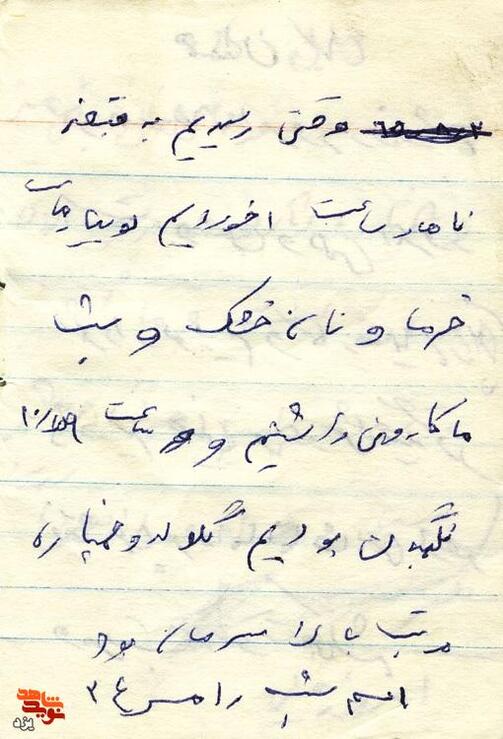 وقتی رسیدیم به قبضه
ناهار ساعت ۱ خوردیم لوبیا
خرما و نان خشک و شب
ماکارونی داشتیم و ساعت
نگهبان بودیم گلوله خمپاره
مرتب بالا سرمان بود
اسم شب رامسر ۳۴
نوید شاهد
یزد